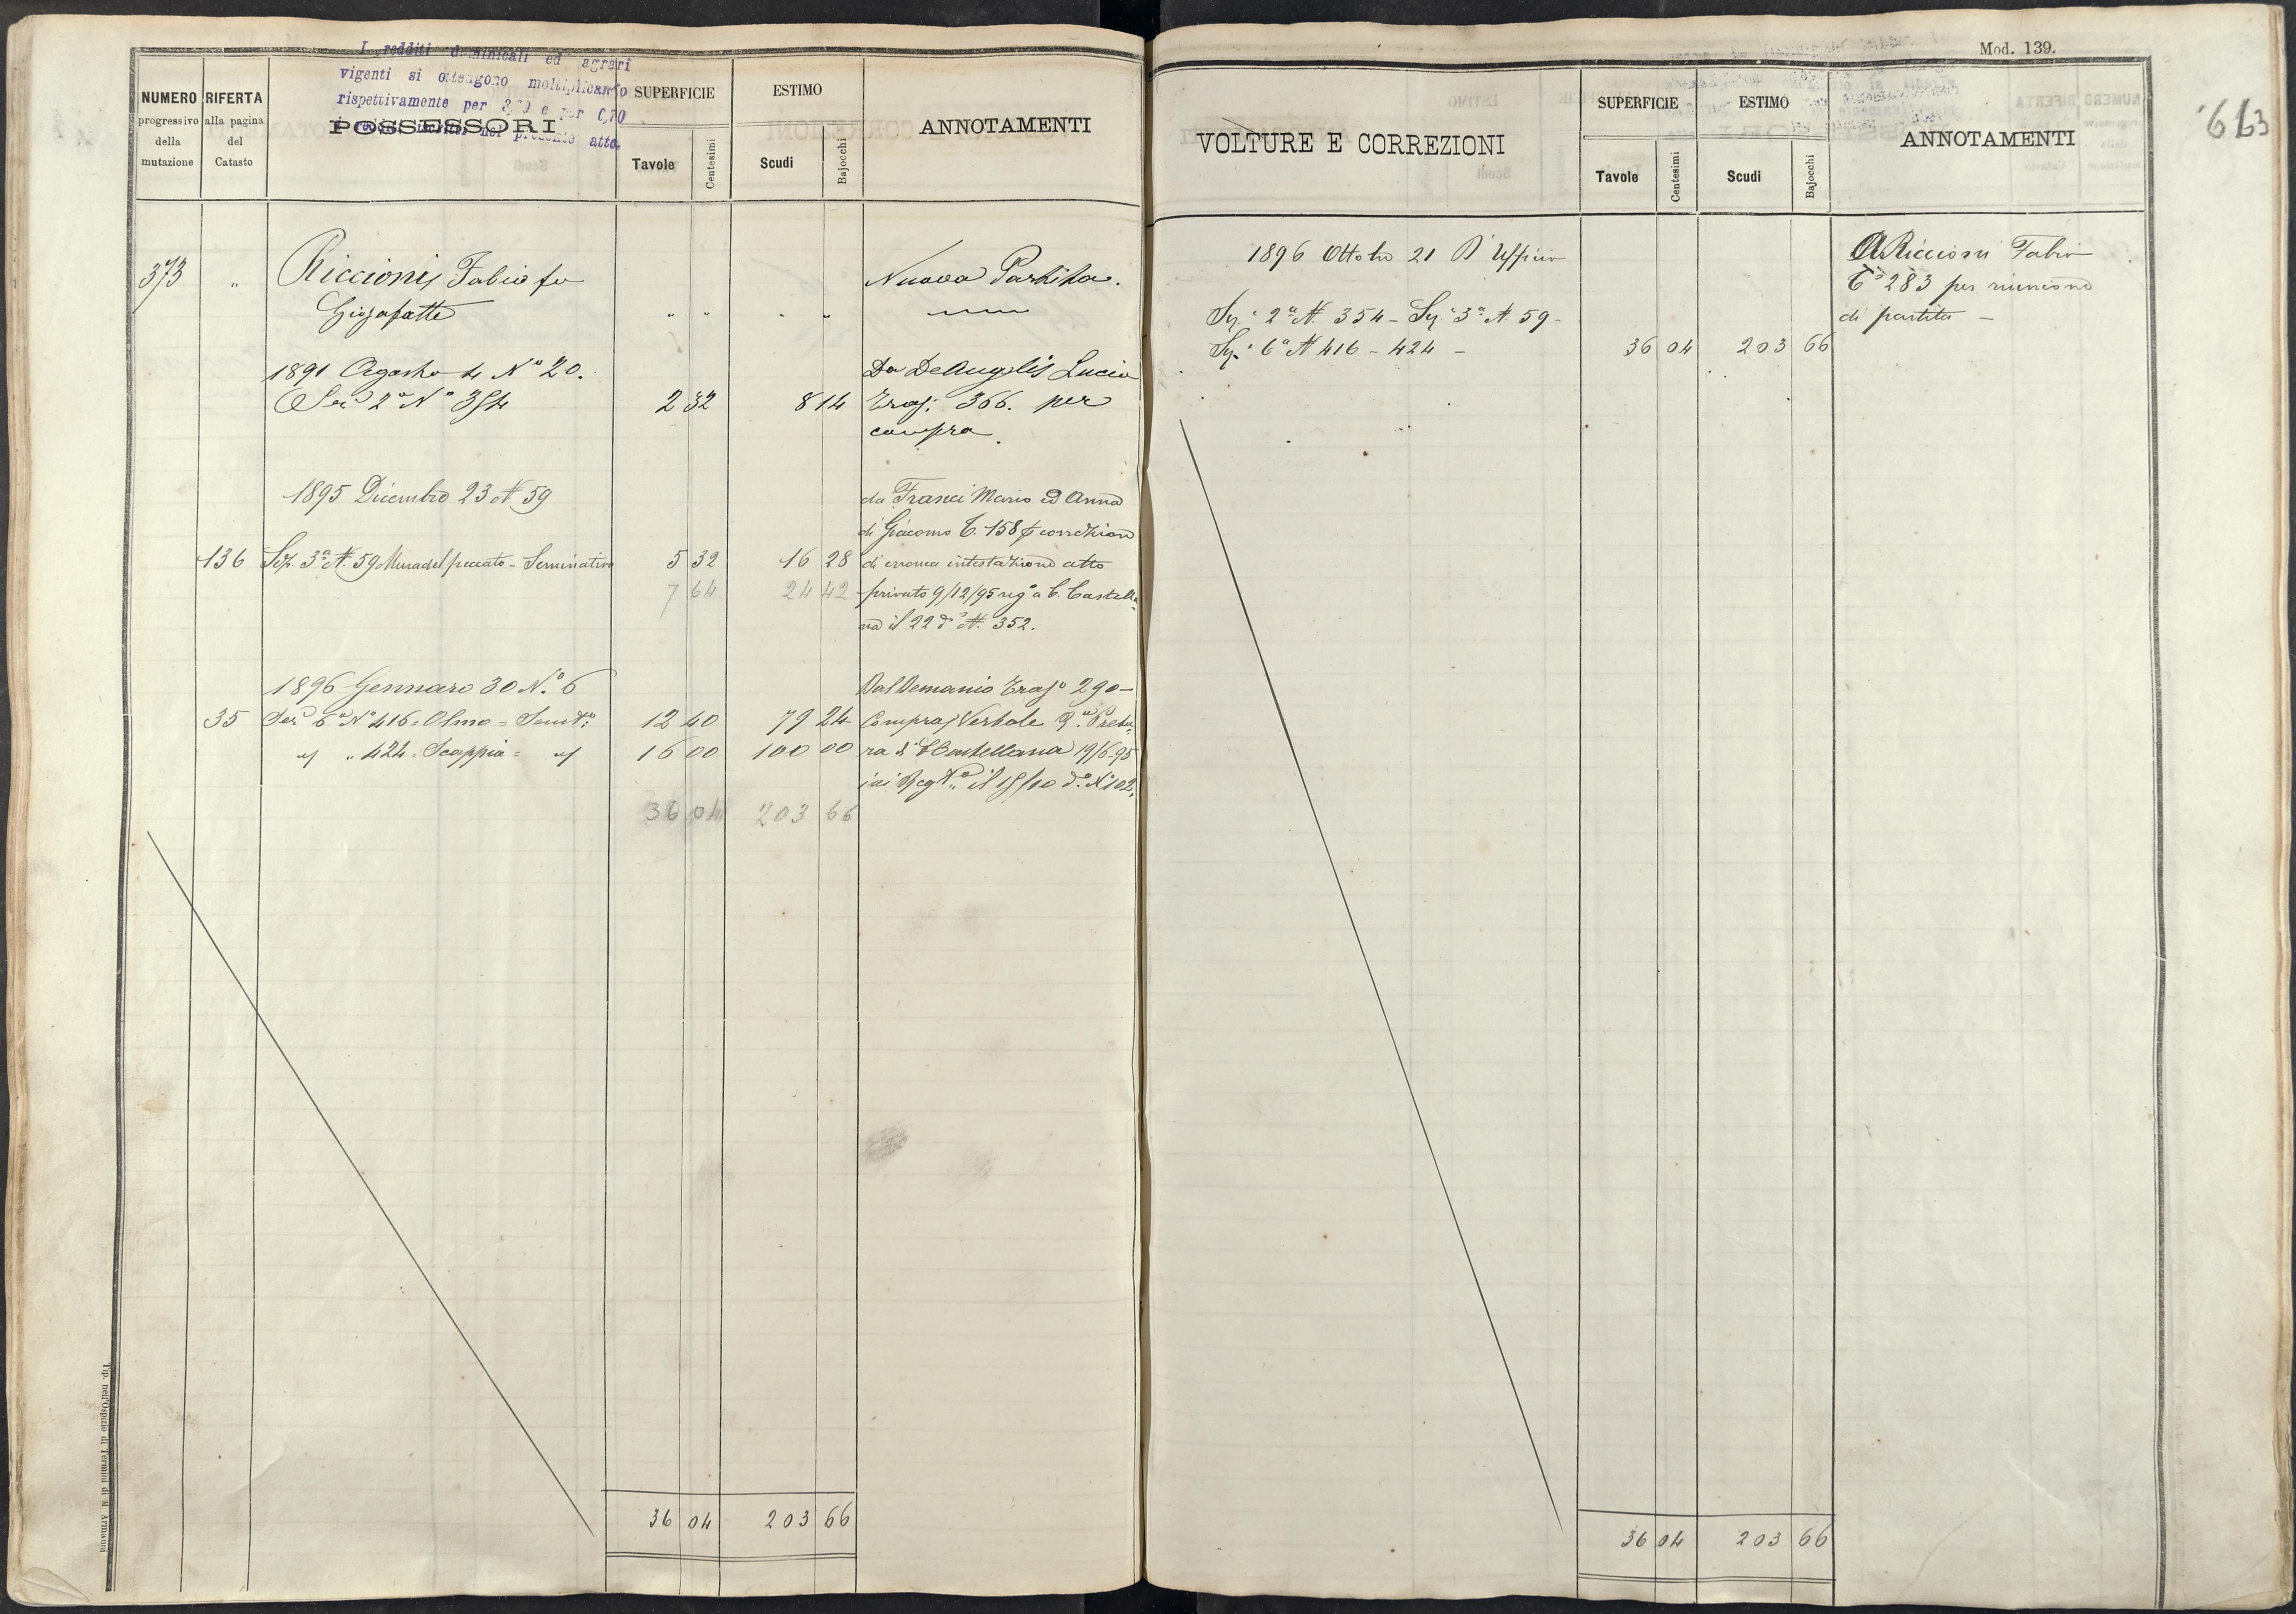 I redditi dominicali ed agrari
vigenti si ottengono moltiplicando
rispettivamente per 3,70 e per 0,70
nel presente atto.
NUMERO progressivo della mutazione
RIFERTA alla pagina del Catasto
POSSESSORI
SUPERFICIE
Tavole Centesimi
ESTIMO
Scudi Bajocchi
ANNOTAMENTI
373 " Riccioni Fabio fu Nuova Partita.
Giosafatte " " " "
1891 Agosto 4 N° 20. Da DeAngelis Lucia
Sez. 2ª N° 354 2 32 8 14 Tras: 366. per
compra.
1895 Dicembre 23 N 59 da Franci Mario ed Anna
di Giacomo T. 158 p correzione
136 Sez. 3ª N. 59 Mura del peccato - Seminativo 5 32 16 28 di erronea intestazione atto
7 64 24 42 privato 9/12/95 reg° a C. Castella
na il 22 d° N. 352.
1896 Gennaro 30 N.° 6 Dal Demanio Tras° 290 -
35 Sez 6ª N° 416 = Olmo = Semt° 12 40 79 24 Compra, Verbale Pretu
" " 424 = Scappia = " 16 00 100 00 ra di CCastellana 19/6-95
ivi Regto il 15/10 d° N° 102.
36 04 203 66
36 04 203 66
Tip. nell'Ospizio di Termini di N Armanni
Mod. 139.
VOLTURE E CORREZIONI
SUPERFICIE
Tavole Centesimi
ESTIMO
Scudi Bajocchi
ANNOTAMENTI
1896 Ottobre 21 D'Ufficio A Riccioni Fabio
T° 283 per riunione
Sez. 2ª N. 354 - Sez. 3ª N. 59 - di partita -
Sez. 6ª N 416 - 424 - 36 04 203 66
36 04 203 66